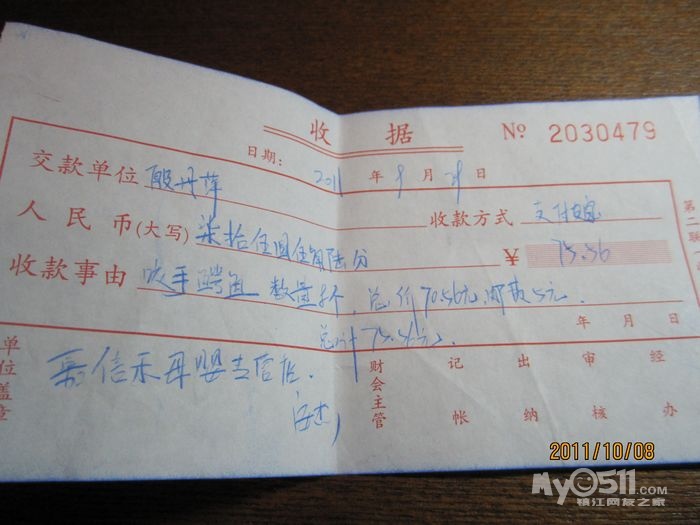 收 据 № 2030479
日期: 2011 年 9 月 29 日
交款单位 殷丹萍 收款方式 支付宝
人民币(大写) 柒拾伍圆伍角陆分 ¥ 75.56
收款事由 咬手鳄鱼 数量 个, 总价70.56元 邮费5元.
总计75.56元
年 月 日
单位盖章
嘉信禾母婴专营店.
财会主管 记帐 出纳 审核 经办
第一联
2011/10/08
My0511.com
镇江网友之家